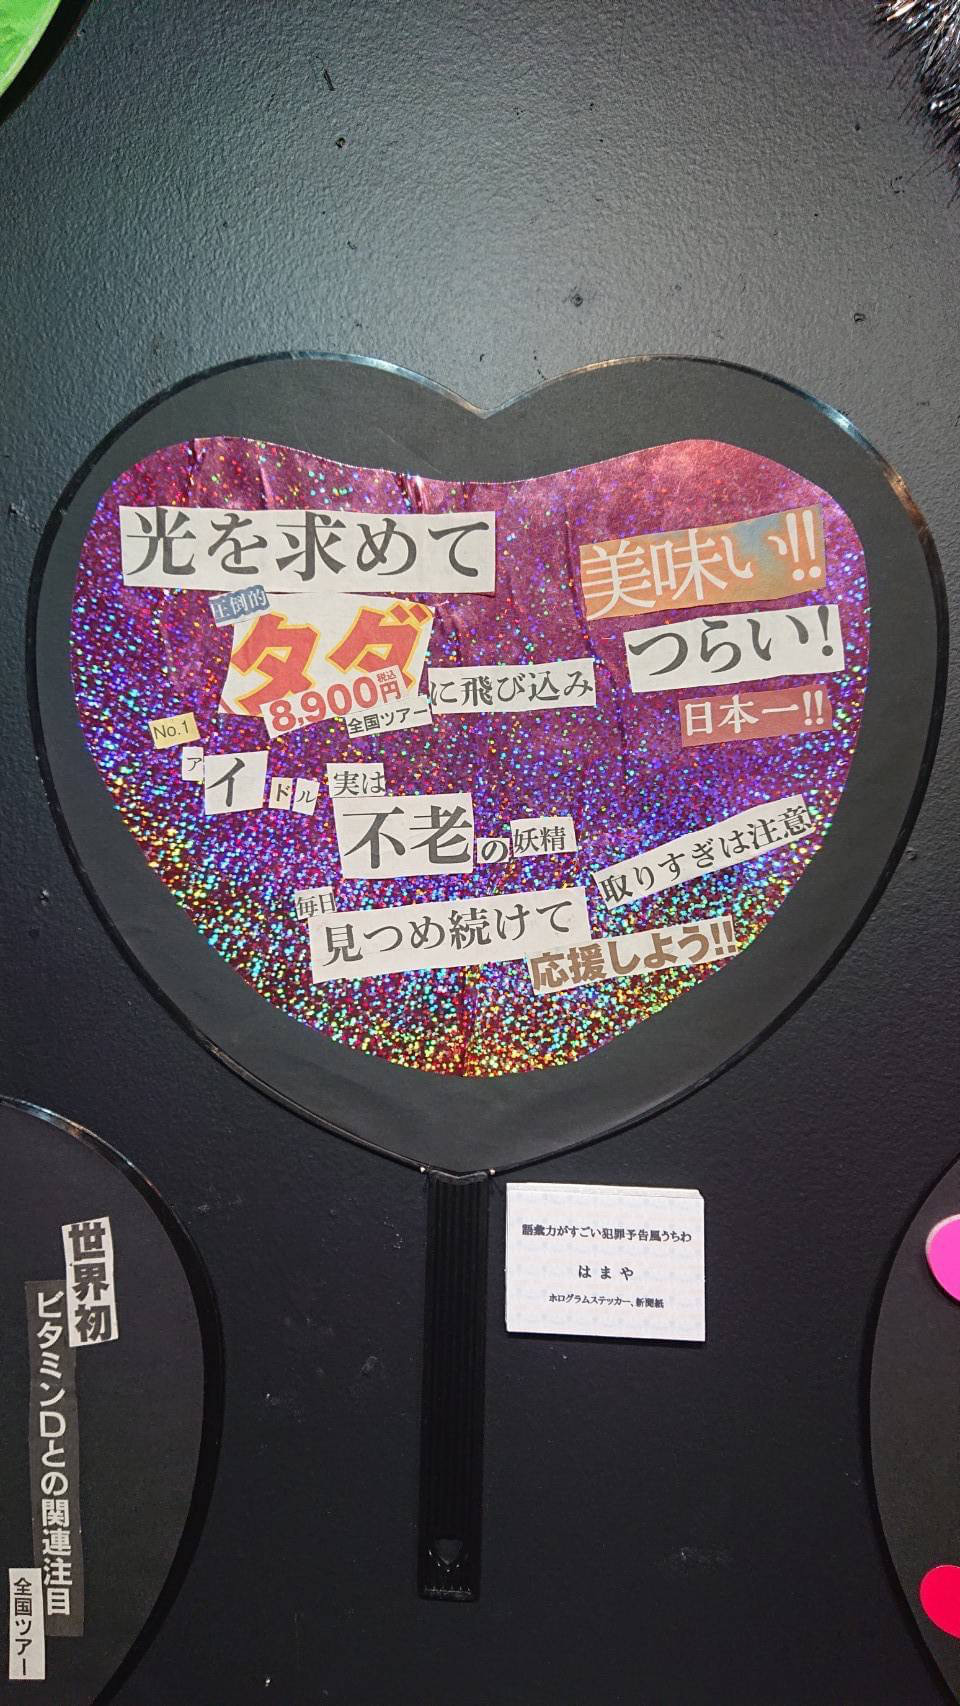 光を求めて
圧倒的
タダ
8,900円
税込
全国ツアー
に飛び込み
No.1
アイドル
実は
不老の妖精
毎日
見つめ続けて
応援しよう!!
美味い!!
つらい!
日本一!!
取りすぎは注意
語彙力がすごい犯罪予告風うちわ
はまや
ホログラムステッカー、新聞紙
世界初
ビタミンDとの関連注目
全国ツアー